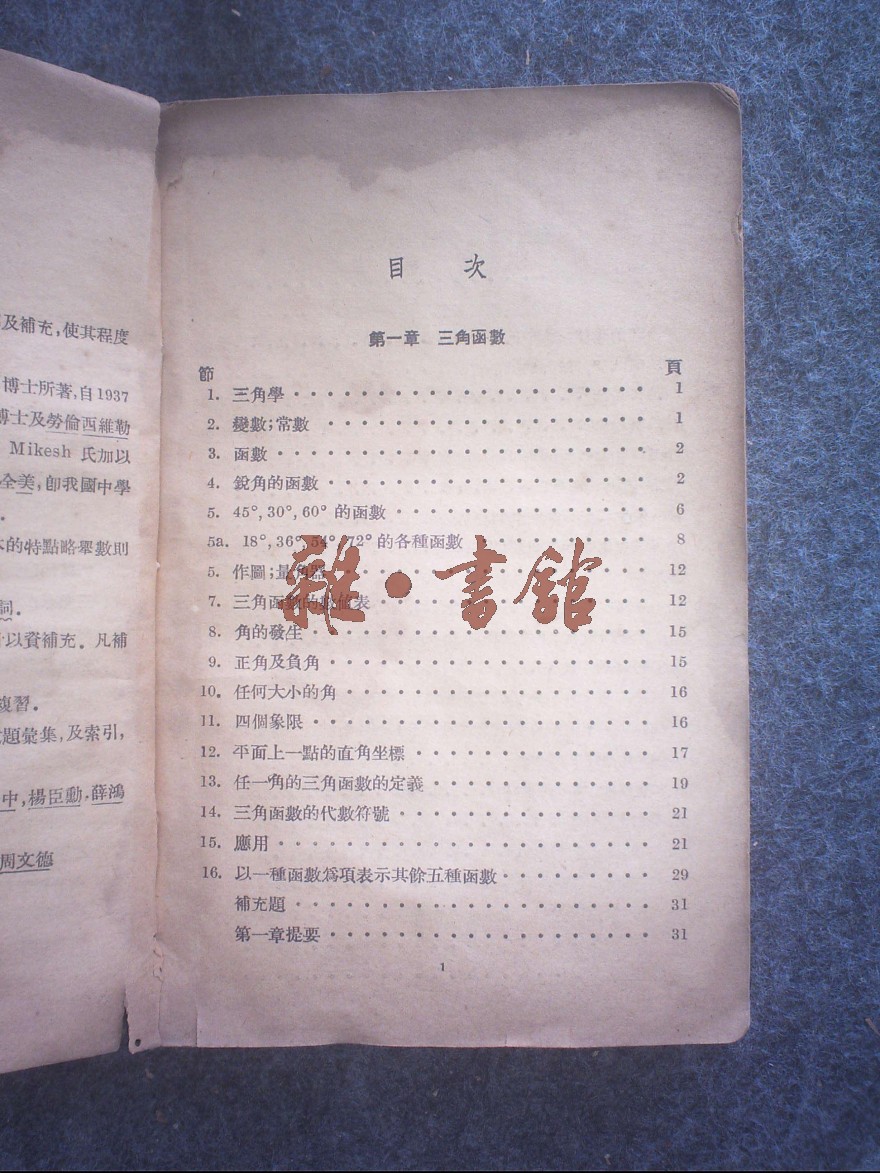 及補充,使其程度
博士所著,自1937
博士及勞倫西維勒
Mikesh 氏加以
全美,卽我國中學
本的特點略舉數則
詞.
以資補充. 凡補
複習.
題彙集,及索引,
中,楊臣勳,薛鴻
周文德
目 次
第一章 三角函數
節 頁
1. 三角學 1
2. 變數;常數 1
3. 函數 2
4. 銳角的函數 2
5. 45°, 30°, 60° 的函數 6
5a. 18°, 36°, 54°, 72° 的各種函數 8
5. 作圖;量角器 12
7. 三角函數的數值表 12
8. 角的發生 15
9. 正角及負角 15
10. 任何大小的角 16
11. 四個象限 16
12. 平面上一點的直角坐標 17
13. 任一角的三角函數的定義 19
14. 三角函數的代數符號 21
15. 應用 21
16. 以一種函數爲項表示其餘五種函數 29
補充題 31
第一章提要 31
1
雜·書館